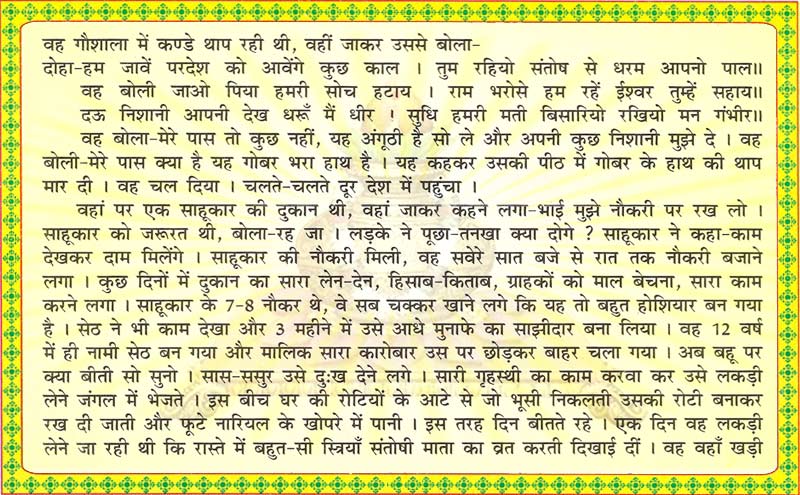 वह गौशाला में कण्डे थाप रही थी, वहीं जाकर उससे बोला-
दोहा-हम जावें परदेश को आवेंगे कुछ काल । तुम रहियो संतोष से धरम आपनो पाल॥
वह बोली जाओ पिया हमरी सोच हटाय । राम भरोसे हम रहें ईश्वर तुम्हें सहाय॥
दऊ निशानी आपनी देख धरूँ मैं धीर । सुधि हमरी मती बिसारियो रखियो मन गंभीर॥
वह बोला-मेरे पास तो कुछ नहीं, यह अंगूठी है सो ले और अपनी कुछ निशानी मुझे दे । वह
बोली-मेरे पास क्या है यह गोबर भरा हाथ है । यह कहकर उसकी पीठ में गोबर के हाथ की थाप
मार दी । वह चल दिया । चलते-चलते दूर देश में पहुंचा ।
वहां पर एक साहूकार की दुकान थी, वहां जाकर कहने लगा-भाई मुझे नौकरी पर रख लो ।
साहूकार को जरूरत थी, बोला-रह जा । लड़के ने पूछा-तनखा क्या दोगे ? साहूकार ने कहा-काम
देखकर दाम मिलेंगे । साहूकार की नौकरी मिली, वह सवेरे सात बजे से रात तक नौकरी बजाने
लगा । कुछ दिनों में दुकान का सारा लेन-देन, हिसाब-किताब, ग्राहकों को माल बेचना, सारा काम
करने लगा । साहूकार के 7-8 नौकर थे, वे सब चक्कर खाने लगे कि यह तो बहुत होशियार बन गया
है । सेठ ने भी काम देखा और 3 महीने में उसे आधे मुनाफे का साझीदार बना लिया । वह 12 वर्ष
में ही नामी सेठ बन गया और मालिक सारा कारोबार उस पर छोड़कर बाहर चला गया । अब बहू पर
क्या बीती सो सुनो । सास-ससुर उसे दुःख देने लगे । सारी गृहस्थी का काम करवा कर उसे लकड़ी
लेने जंगल में भेजते । इस बीच घर की रोटियों के आटे से जो भूसी निकलती उसकी रोटी बनाकर
रख दी जाती और फूटे नारियल के खोपरे में पानी । इस तरह दिन बीतते रहे । एक दिन वह लकड़ी
लेने जा रही थी कि रास्ते में बहुत-सी स्त्रियाँ संतोषी माता का व्रत करती दिखाई दीं । वह वहाँ खड़ी